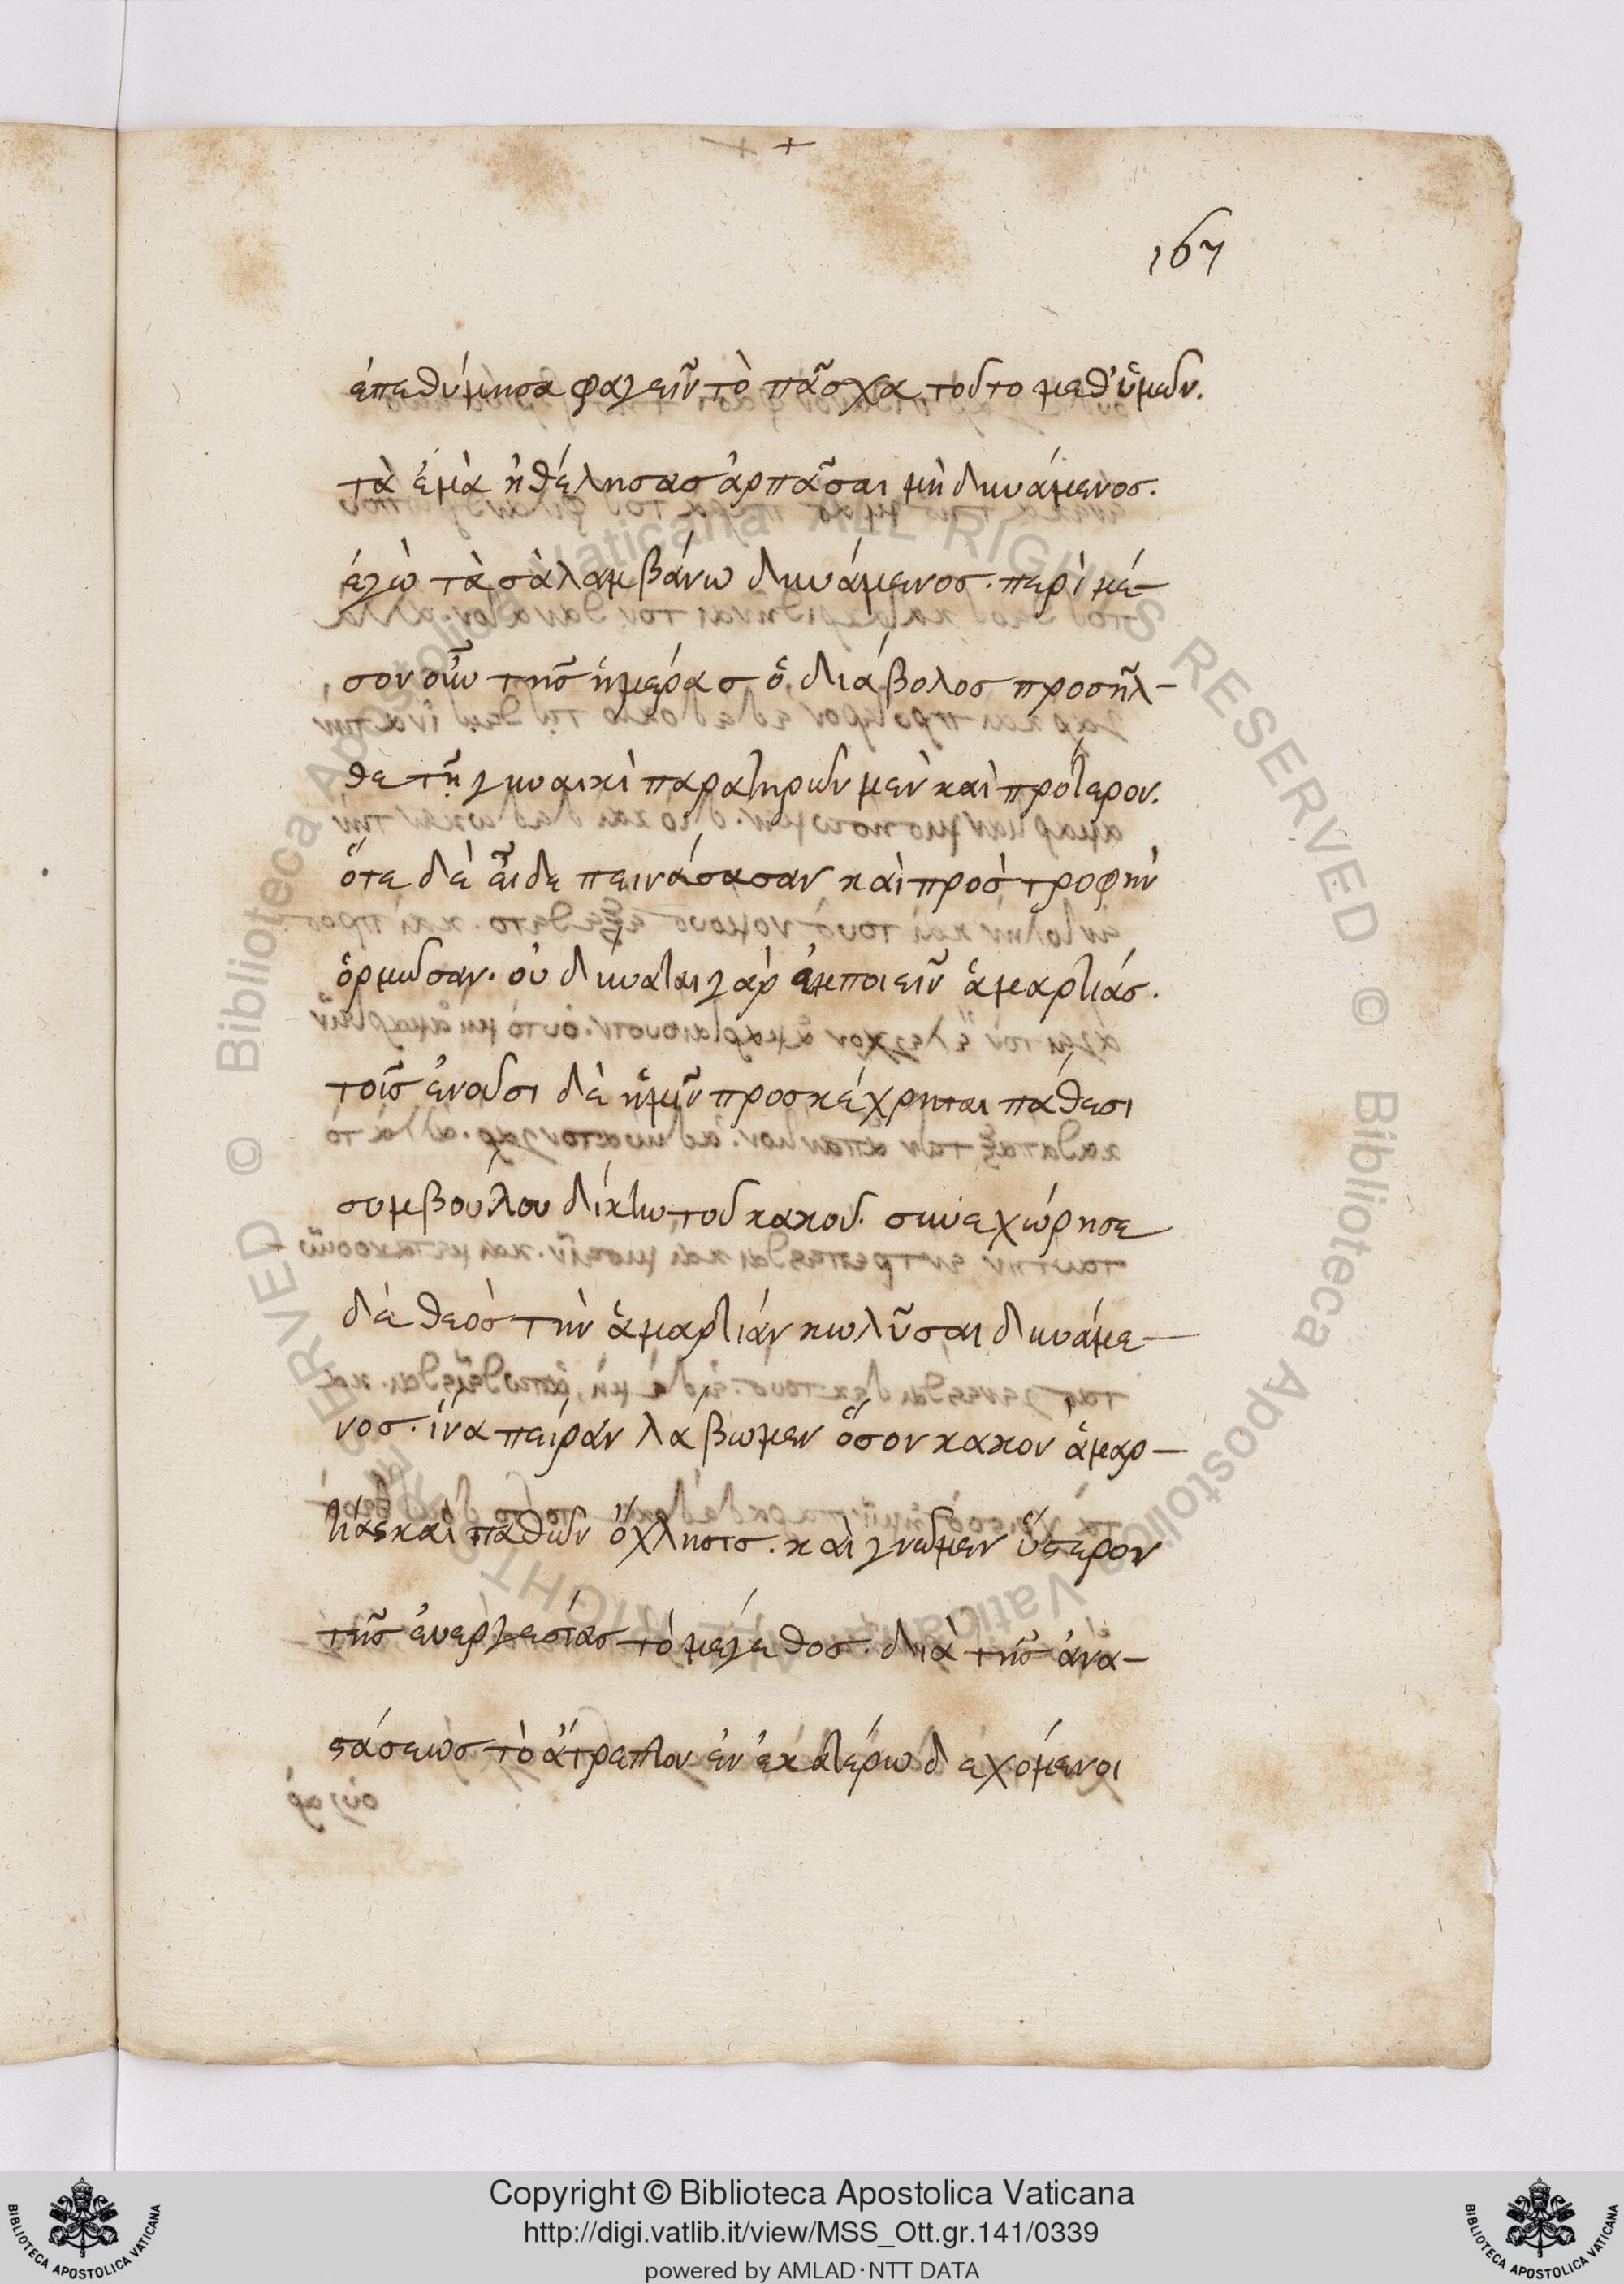 167
ἐπεθύμησα φαγεῖν τὸ πᾶσχα τοῦτο μεθ' ὑμῶν.
τὰ ἐμὰ ἠθέλησασ ἁρπᾶσαι μὴ δυνάμενος.
ἐγὼ τὰ σὰ λαμβάνω δυνάμενοσ. περὶ μέ-
σον οὖν τῆσ ἡμέρασ ὁ διάβολος προσῆλ-
θε τῇ γυναικὶ παρατηρῶν μὲν καὶ πρότερον.
ὅτε δὲ εἶδε πεινάσασαν καὶ πρὸσ τροφὴν
ὁρμῶσαν. οὐ δύναται γὰρ ἐμποιεῖν ἁμαρτιάσ.
τοῖσ ἐνοῦσι δὲ ἡμῖν προσκέχρηται πάθεσι
συμβούλου δίκην τοῦ κακοῦ. συνεχώρησε
δὲ θεὸσ τὴν ἁμαρτιάν κωλῦσαι δυνάμε-
νοσ. ἵνα πεῖραν λάβωμεν ὅσον κακὸν ἁμαρ-
τίας καὶ παθῶν ὄχλησισ. καὶ γνῶμεν ὕστερον
τῆσ ἐυεργεσίασ τὸ μέγεθοσ. διὰ τῆσ ἀνα-
στάσεωσ τὸ ἄτρεπτον ἐν ἑκατέρω δεχόμενοι
Copyright © Biblioteca Apostolica Vaticana
http://digi.vatlib.it/view/MSS_Ott.gr.141/0339
powered by AMLAD·NTT DATA